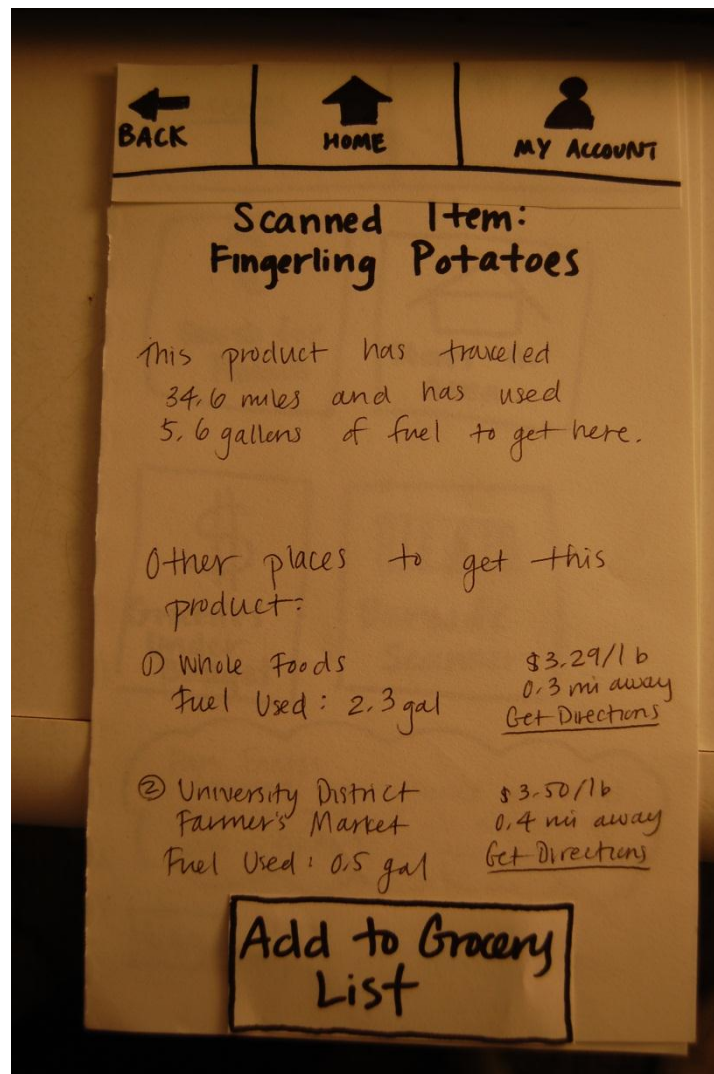 BACK
HOME
MY ACCOUNT
Scanned Item:
Fingerling Potatoes
This product has traveled
34.6 miles and has used
5.6 gallons of fuel to get here.
Other places to get this
product:
① Whole Foods
$3.29/lb
Fuel Used: 2.3 gal
0.3 mi away
Get Directions
② University District
$3.50/lb
Farmer's Market
0.4 mi away
Fuel Used: 0.5 gal
Get Directions
Add to Grocery
List